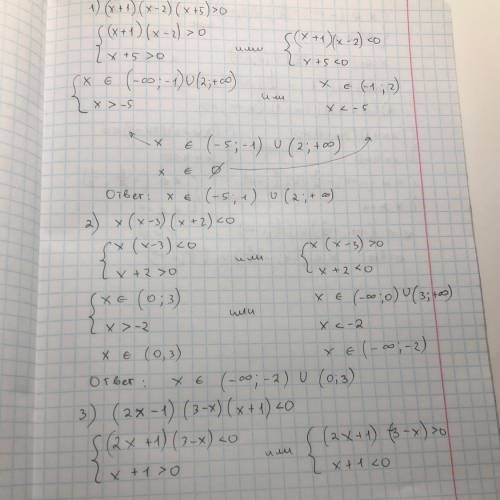 1) (x+1)(x-2)(x+5)>0
{(x+1)(x-2)>0 или {(x+1)(x-2)<0
x+5>0 x+5<0
{x ∈ (-∞;-1)∪(2;+∞) или x ∈ (-1;2)
x>-5 x<-5
x ∈ (-5;-1) ∪ (2;+∞)
x ∈ ∅
Ответ: x ∈ (-5;-1) ∪ (2;+∞)
2) x(x-3)(x+2)<0
{x(x-3)<0 или {x(x-3)>0
x+2>0 x+2<0
{x ∈ (0;3) или x ∈ (-∞;0)∪(3;+∞)
x>-2 x<-2
x ∈ (0,3) x ∈ (-∞;-2)
Ответ: x ∈ (-∞;-2) ∪ (0,3)
3) (2x-1)(3-x)(x+1)<0
{(2x+1)(3-x)<0 или {(2x+1)(3-x)>0
x+1>0 x+1<0